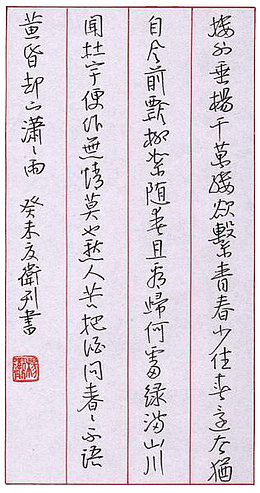 搂外垂楊千萬縷欲繫青春少住春還去猶
自今前飄柳絮随春且看歸何處綠滿山川
聞杜宇便作無情莫也愁人苦把酒問春春不語
黄昏却下瀟瀟雨 癸未夏衛列書